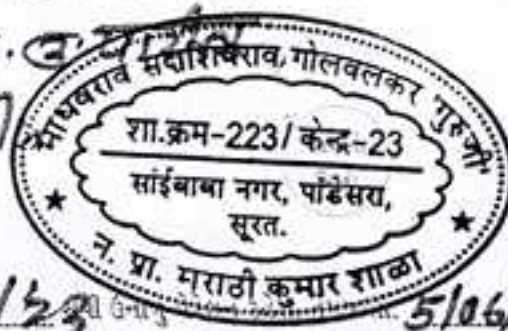 माधवराव सदाशिवराव गोलवलकर गुरुजी
शा.क्रम-223/ केन्द्र-23
सांईबाबा नगर, पांडेसरा,
सूरत.
न. प्रा. मराठी कुमार शाळा
5/06/